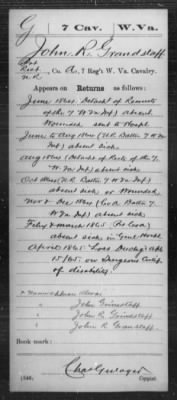 G 7 Cav. W. Va.
John R. Grandstaff
Co. A, 7 Reg't W. Va. Cavalry.
Appears on Returns as follows:
June 1864 Detacht of Recruits
of the 7 W Va Inf) absent
Wounded sent to Hospl
June to Aug 1864 (U.R. Battn 7 W Va
Inf) absent sick
Aug 1864 (Detacht of Rects of the 7
W Va Inf) absent sick
Oct 1864 (U R Battn 7 W Va Inf)
absent sick or Wounded
Nov & Dec 1864 (Co A Battn 7
W Va Inf) absent sick
Feby & March 1865 (Co A)
absent sick in Genl Hosp
April 1865 Loss Dischg Apl
15/65 on Surgeons Certif
of disability.
John Grinestaff
John R. Grindstaff
John R. Granstaff
Book mark:
(546)
Copyist.